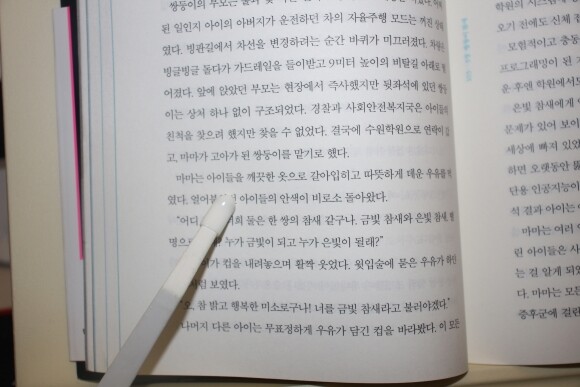 쌍둥이의 부모는
된 일인지 아이의 아버지가 운전하던 차의 자율주행 모드는 꺼진 상태
였다. 빙판길에서 차선을 변경하려는 순간 바퀴가 미끄러졌다. 차는
빙글빙글 돌다가 가드레일을 들이받고 9미터 높이의 비탈길 아래로
어졌다. 앞에 앉았던 부모는 현장에서 즉사했지만 뒷좌석에 있던
이는 상처 하나 없이 구조되었다. 경찰과 사회안전복지국은 아이들의
친척을 찾으려 했지만 찾을 수 없었다. 결국에 수원학원으로 연락이
고, 마마가 고아가 된 쌍둥이를 맡기로 했다.
마마는 아이들을 깨끗한 옷으로 갈아입히고 따뜻하게 데운 우유를
였다. 아이들의 안색이 비로소 돌아왔다.
둘은 한 쌍의 참새 같구나. 금빛 참새와 은빛 참새.
누가 금빛이 되고 누가 은빛이 될래?"
컵을 내려놓으며 활짝 웃었다. 윗입술에 묻은 우유가
보였다.
참 밝고 행복한 미소로구나! 너를 금빛 참새라고 불러야겠다."
나머지 다른 아이는 무표정하게 우유가 담긴 컵을 바라봤다. 이 모든
학원의
오기 전에도 신체
모험적이고 충동
프로그래밍이 된
훈·후엔 학원에서도
은빛 참새에게
문제가 있어 보이
세상에 빠져 있었
하면 오랫동안
단용 인공지능이
석 결과 아이는
마마는 여러
린 아이들은 사
는 걸 알게 되었
다. 마마는 모든
증후군에 걸린